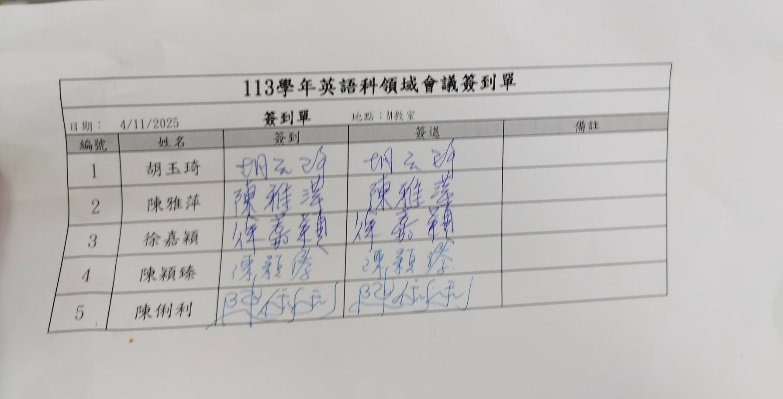 113學年英語科領域會議簽到單
日期： 4/11/2025 簽到單 地點：教室
編號 姓名 簽到 簽退 備註
1 胡玉琦 胡玉琦 胡玉琦
2 陳雅萍 陳雅萍 陳雅萍
3 徐嘉穎 徐嘉穎 徐嘉穎
4 陳穎臻 陳穎臻 陳穎臻
5 陳俐利 陳俐利 陳俐利